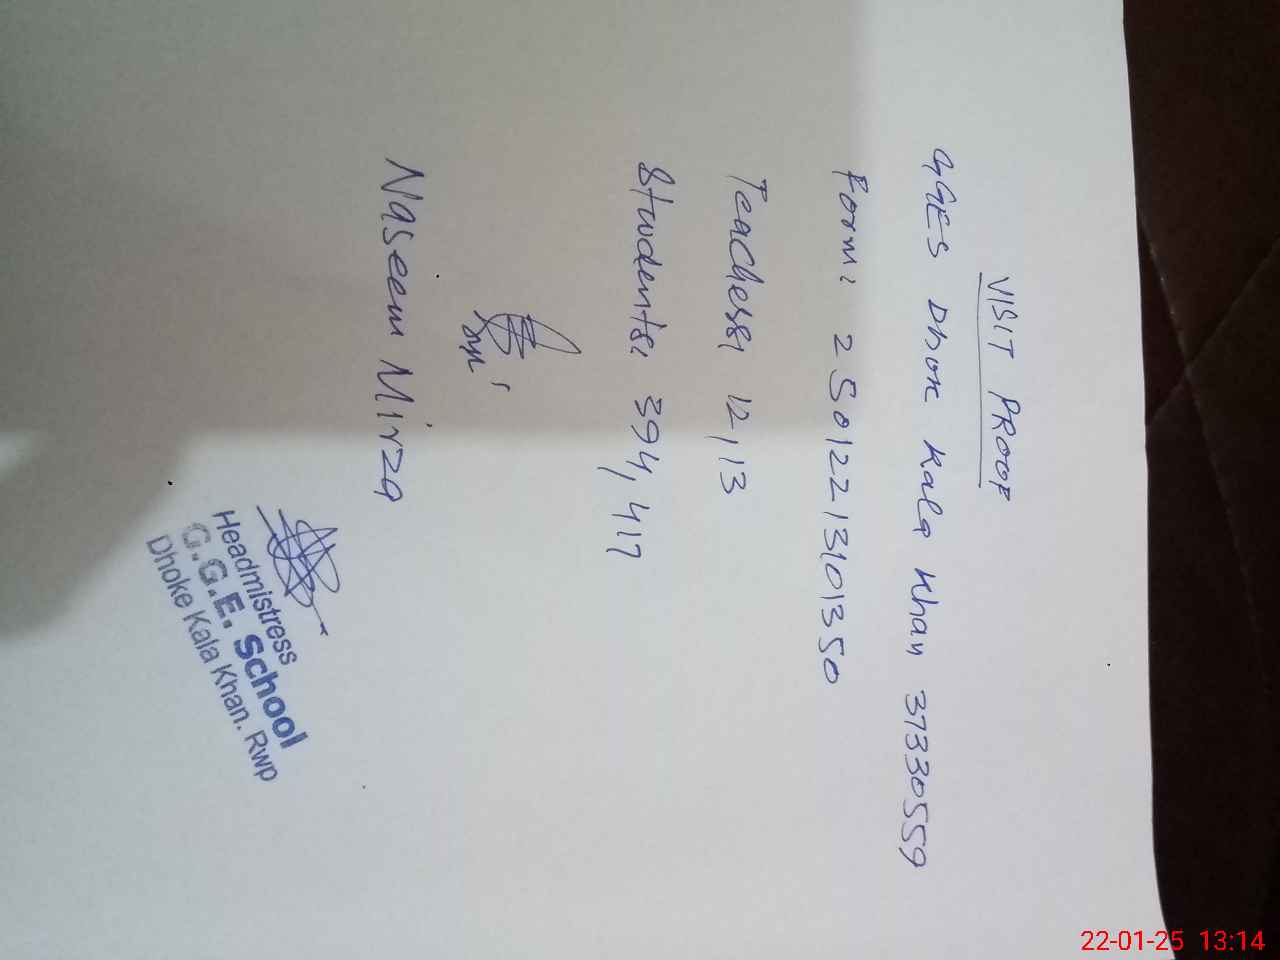 VISIT PROOF
GGES Dhok Kala Khan 37330559
Form: 25012213101350
Teachers: 12, 13
Students: 394, 417
Naseem Mirza
Headmistress
G.G.E. School
Dhoke Kala Khan. Rwp
22-01-25 13:14